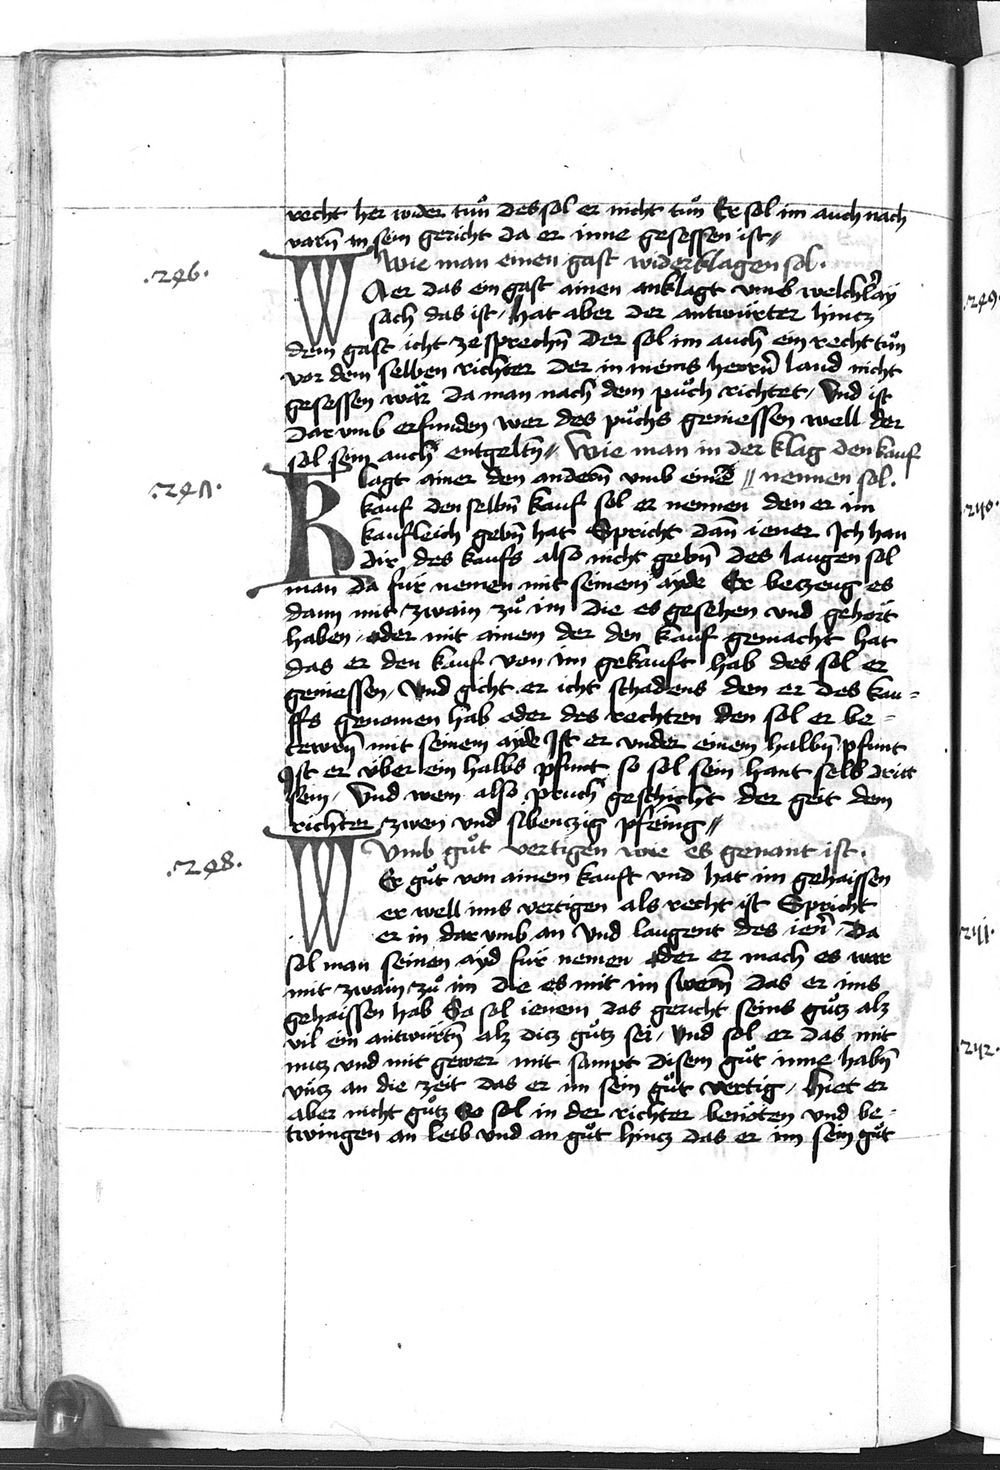 recht her wider tuͦn des sol er nicht tuͦn Er sol im auch nach
varn̄ in sein gericht da er inne gesessen ist //
.246.
Wie man einen gast widerklagen sol.
WAer das ein gast ainen anklagt vmb welchlay
sach das ist / hat aber der antwürter hincz
dem gast icht ze sprechn̄ Der sol im auch ein recht tuͦn
vor dem selben richter der in meins herrn̄ land nicht
gesessen wär Da man nach dem puͦch richtet / Vnd ist
dar vmb erfunden wer des puͦchs geniessen well der
sol sein auch entgeltn̄ // Wie man in der klag den kauf
// nennen sol.
.247.
Klagt ainer den andern̄ vmb einen
kauf den selbn̄ kauf sol er nennen den er im
kaufleich gebn̄ hat Spricht dan̄ iener Ich han
dir des kaufs also nicht gebn̄ des laugen sol
man da für nemen mit seinem ayde Er beczeug es
dann mit zwain zuͦ im die es gesehen vnd gehört
haben / oder mit ainem der den kauf gemacht hat
das er den kauf von im gekauft hab des sol er
geniessen / Vnd gicht er icht schadens den er des kau=
ffs genomen hab oder des rechten den sol er be=
tewrn̄ mit seinem ayde Ist er vnder einem halbn̄ pfunt
Ist er über ein halbs pfunt so sol sein hant selb dritt
sein / Vnd wem also pruch geschicht der geit dem
richter zwen vnd sibenczig pfening //
.248.
Vmb guͦt vertigen wie es genant ist.
WEr guͦt von ainem kauft vnd hat im gehaissen
er well ims vertigen als recht ist Spricht
er in dar vmb an Vnd laugent des ien̄ / Da
sol man seinen ayd für nemen oder er mach es war
mit zwain zuͦ im die es mit im swern̄ das er ims
gehaissen hab So sol ienem das gericht seins guͦtz alz
vil ein antwürtn̄ alz ditz guͦtz sei / Vnd sol er das mit
nutz vnd mit gewer mit sampt disem guͦt inne habn̄
vntz an die zeit das er im sein guͦt vertig / Hiet er
aber nicht guͦtz So sol in der richter benöten vnd be=
twingen an leib vnd an guͦt hincz das er im sein guͦt
.249.
.250.
.251.
.252.